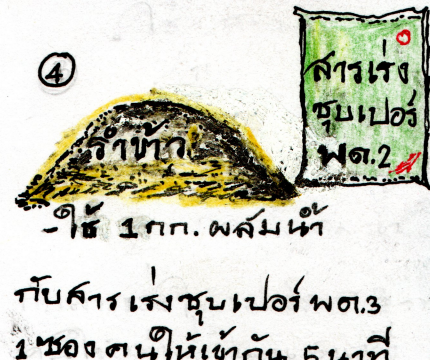 ④
รำข้าว
สารเร่ง
ซุบเปอร์
พด.2
-ใช้ 1 กก. ผสมน้ำ
กับสารเร่งซุบเปอร์ พด.3
1 ซอง คนให้เข้ากัน 5 นาที